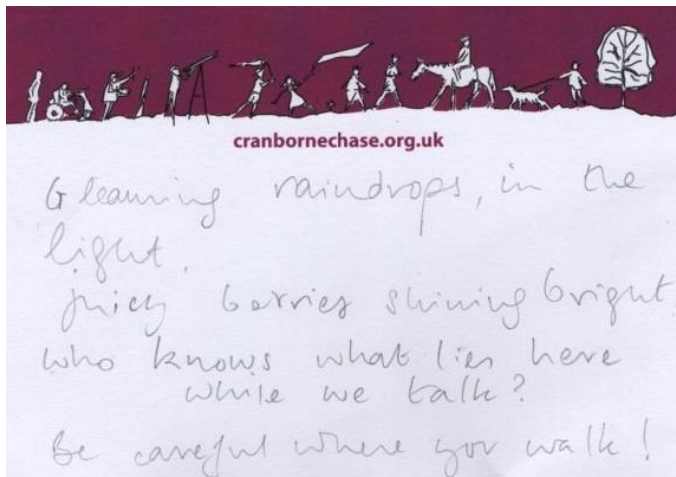 cranbornechase.org.uk
Gleaming raindrops, in the
light.
Juicy berries shining bright,
who knows what lies here
while we talk?
Be careful where you walk!